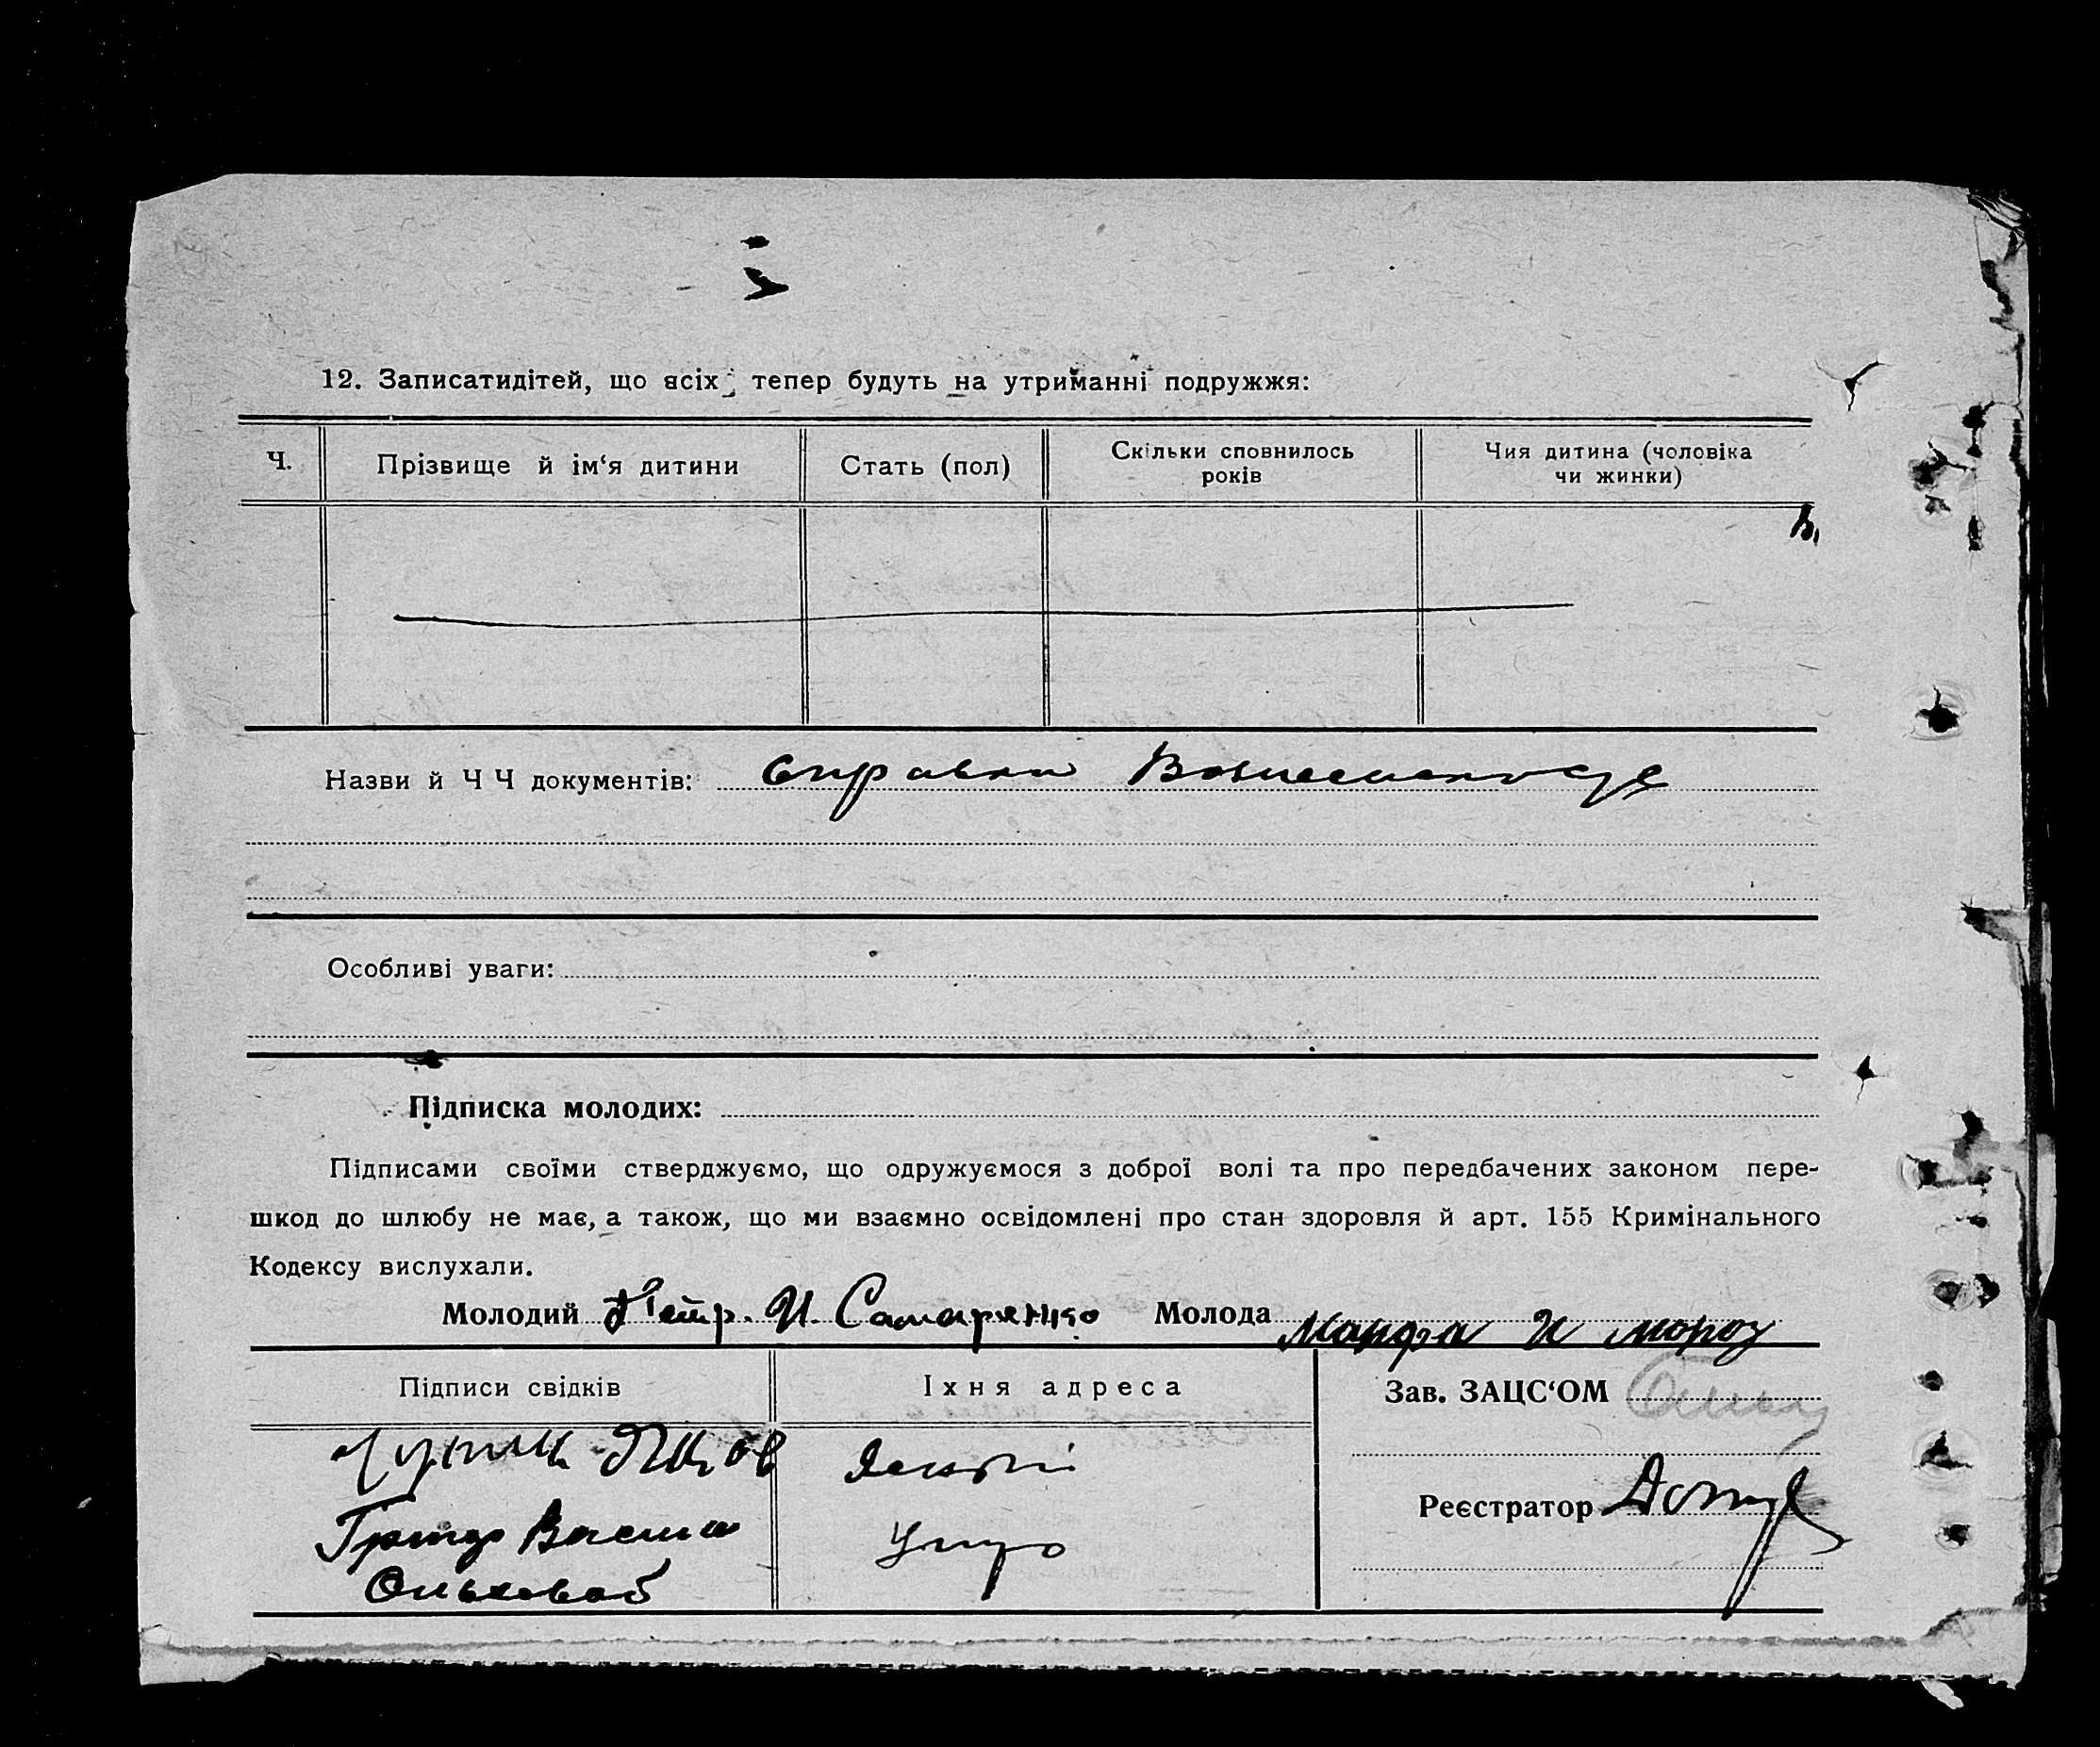 12. Записатидітей, що всіх тепер будуть на утриманні подружжя:
Ч.
Прізвище й ім‘я дитини
Стать (пол)
Скільки сповнилось
років
Чия дитина (чоловіка
чи жинки)
Назви й Ч Ч документів: Справки
Особливі уваги:
Підписка молодих:
Підписами своїми стверджуємо, що одружуємося з доброї волі та про передбачених законом пере-
шкод до шлюбу не має, а також, що ми взаємно освідомлені про стан здоровля й арт. 155 Кримінального
Кодексу вислухали.
Молодий Петр. И. Самаренко Молода И мороз
Підписи свідків
Їхня адреса
Зав. ЗАЦС‘ОМ
Реєстратор